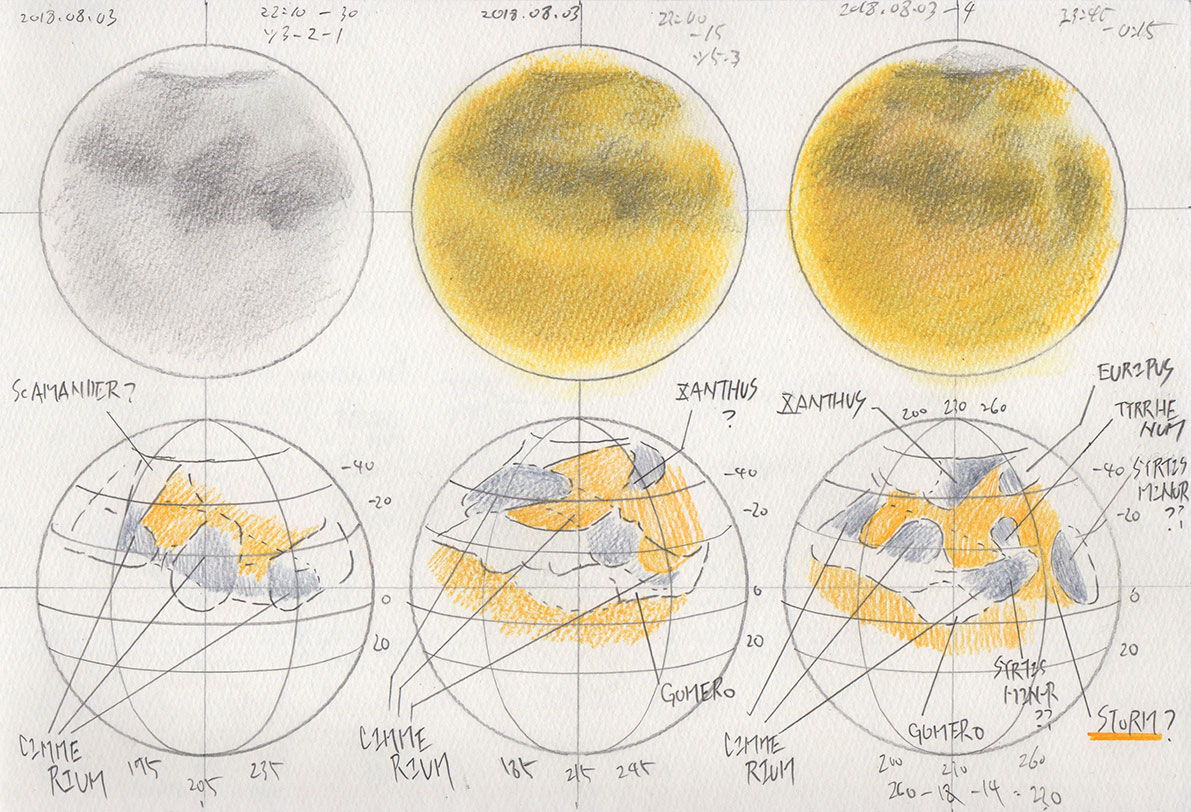 2018.08.03
22:10 - 30
1/3-2-1
2018.08.03
22:00
-15
1/5-3
2018.08.03-4
23:45
-0:15
SCAMANDER?
XANTHUS
?
XANTHUS
200 230 260
EURIPUS
TYRRHE
NUM
SYRTIS
MINOR
??
-40
-20
0
20
-40
-20
0
20
-40
-20
0
20
CIMME
RIUM
175
205
235
CIMME
RIUM
185
215
245
GOMERO
CIMME
RIUM
GOMERO
SYRTIS
MINOR
??
STORM?
200
260